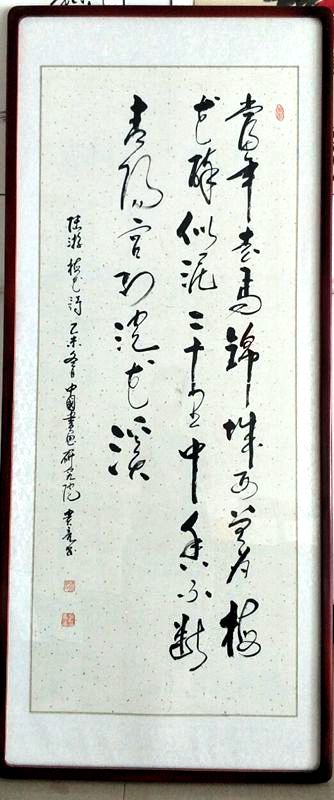 當年走馬錦城西曾为梅
花醉似泥二十里中香不斷
青陽宮到浣花溪
陸游梅花詩乙未冬月中國書畫研究院